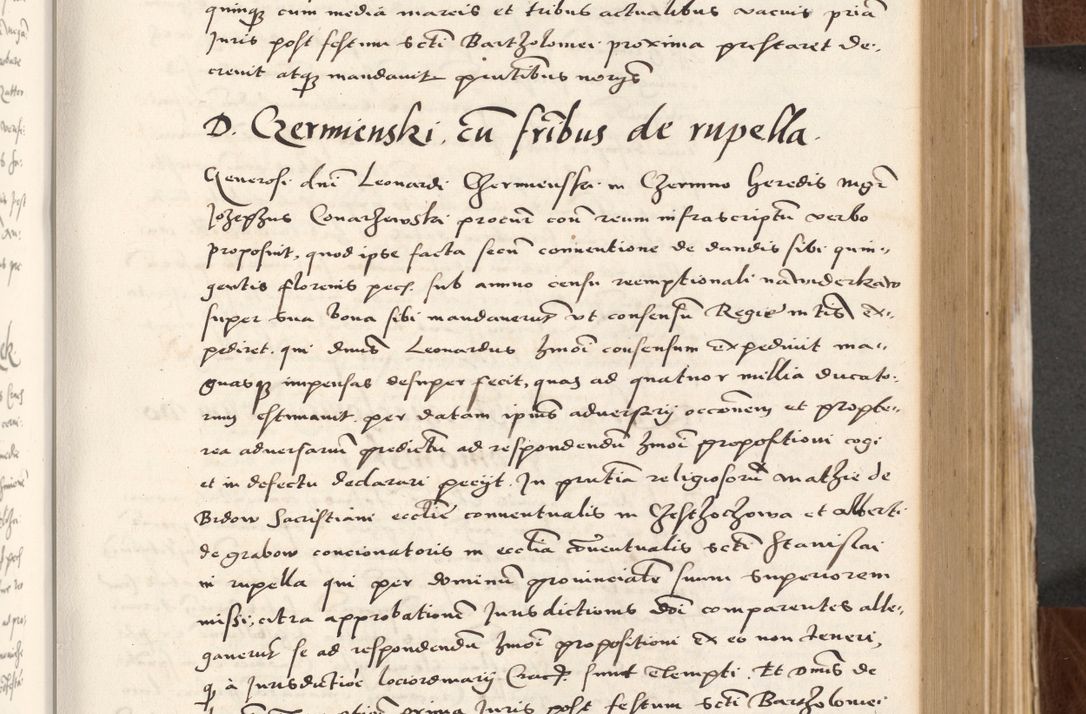 quinqȝ cum media marcis et tribus actualibus vacuis priā
Juris post festum scti Bartholomei proxima prestaret de-
crevit atqȝ mandavit pntibus
D. Czermienski cū fribus de rupella.
Generosi dni Leonardi Czermenski in Czermno heredis mgr
Conarzewski procur cont reum infrascriptū verbo
proposuit, quod ipse facta secū conventione de dandis sibi quin-
gentis florenis pecf. sub annuo censu reemptionali
super sua bona sibi mandaverūt vt consensū Regie mtis ex-
pediret. qui dnus Leonardus hmoi consensum expedivit ma-
gnasqȝ impensas desuper fecit, quas ad quatuor millia ducato-
rum estimavit per datam ipius adversarij occonem et propte-
rea adversarium predictū ad respondendū hmoi propositioni cogi
et in defectu declarari pecijt. In pntia religiosorū Mathie de
Bedow Sacristiani ecclie conventualis in Czestochowa et Alberti
de grabow concionatoris in ecclia conventualis scti Stanislai
in rupella qui per dominū provincialē suum superiorem
missi, citra approbationē Jurisdictionis dni comparentes alle-
gaverūt se ad respondendū hmoi propositioni ex eo non teneri,
qȝ à Jurisdictiōe loci ordinarij sunt exempti. Et dnus de
prima Juris post festum scti Bartholomei